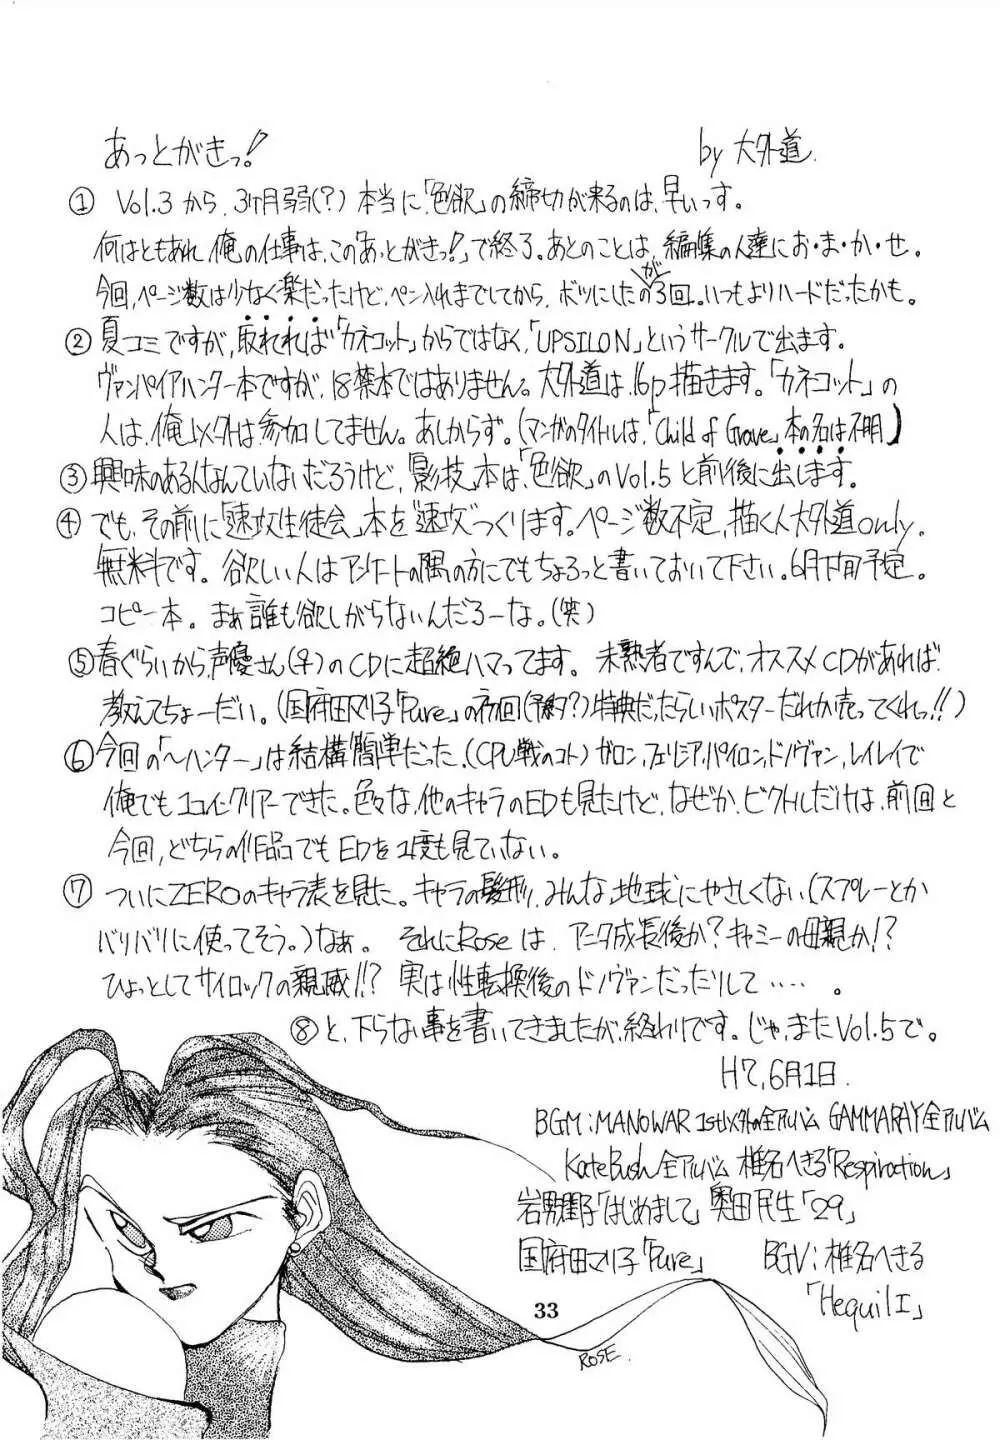 あっとがきっ! by 大外道.
① Vol.3 から、3ヶ月弱(?) 本当に「色欲」の締切が来るのは、早いっす。
何はともあれ、俺の仕事は、この「あっとがきっ!」で終了。あとのことは、編集の人達にお・ま・か・せ。
今回、ページ数は少なく楽だったけど、ペン入れまでしてから、ボツにしたのが3回。いつもよりハードだったかも。
② 夏コミですが、取れてれば「カネコット」からではなく、「UPSILON」というサークルで出ます。
ヴァンパイアハンター本ですが、18禁本ではありません。大外道は、16p描きます。「カネコット」の
人は、俺以外は参加してません。あしからず。(マンガのタイトルは、「Child of Grave」本の名は不明)
③ 興味のある人なんていないだろうけど、「影技」本は、「色欲」のVol.5 と前後に出します。
④ でも、その前に「速攻生徒会」本を"速攻"つくります。ページ数不定、描く人大外道only。
無料です。欲しい人はアンケートの隅の方にでもちょろっと書いておいて下さい。6月下旬予定。
コピー本。まぁ誰も欲しがらないんだろーな。(笑)
⑤ 春ぐらいから、声優さん(♀)のCDに超絶ハマってます。 未熟者ですんで、オススメCDがあれば、
教えてちょーだい。(国府田マリ子「Pure」の初回(予約?)特典だったらしいポスターだれか売ってくれっ!!)
⑥ 今回の「〜ハンター」は結構簡単だった。(CPU戦のコト) ガロン、フェリシア、パイロン、ドノヴァン、レイレイで
俺でも1コインクリアーできた。色々な、他のキャラのEDも見たけど、なぜか、ビクトルだけは、前回と
今回、どちらの作品でもEDを1度も見ていない。
⑦ ついにZEROのキャラ表を見た。キャラの髪形、みんな地球にやさしくない(スプレーとか
バリバリに使ってそう。)なぁ。 それにRose は、アニタ成長後か? キャミーの母親か!?
ひょっとしてサイロックの親戚!!? 実は性転換後のドノヴァンだったりして‥‥‥。
⑧ と、下らない事を書いてきましたが、終わりです。じゃ、またVol.5で。
H7,6月1日.
BGM:MANOWAR 1st以外の全アルバム GAMMARAY全アルバム
KateBush全アルバム 椎名へきる「Respiration」
岩男潤子「はじめまして」 奥田民生「29」
国府田マリ子「Pure」 BGV:椎名へきる
「HequilI」
33
ROSE.